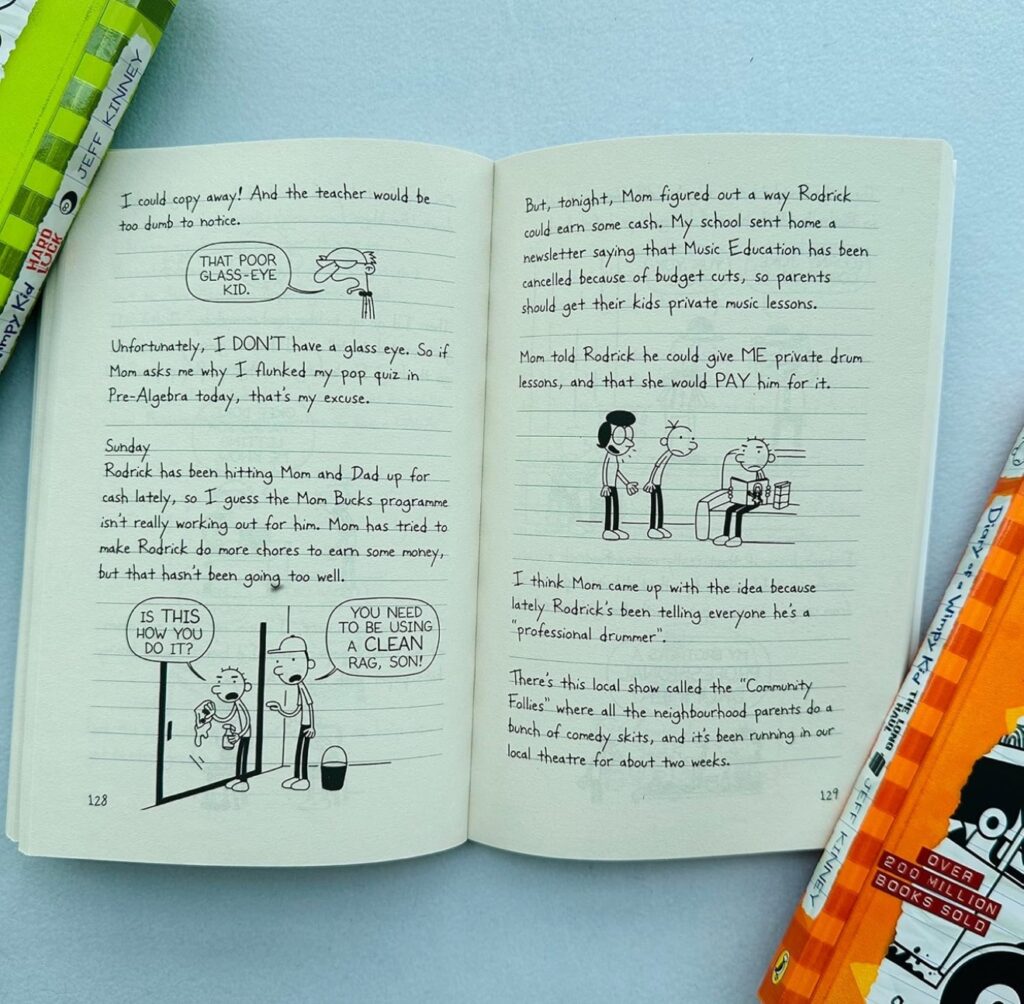 JEFF KINNEY
HARD
LUCK
mpy Kid
I could copy away! And the teacher would be
too dumb to notice.
THAT POOR
GLASS-EYE
KID.
Unfortunately, I DON'T have a glass eye. So if
Mom asks me why I flunked my pop quiz in
Pre-Algebra today, that's my excuse.
Sunday
Rodrick has been hitting Mom and Dad up for
cash lately, so I guess the Mom Bucks programme
isn't really working out for him. Mom has tried to
make Rodrick do more chores to earn some money,
but that hasn't been going too well.
IS THIS
HOW YOU
DO IT?
YOU NEED
TO BE USING
A CLEAN
RAG, SON!
128
But, tonight, Mom figured out a way Rodrick
could earn some cash. My school sent home a
newsletter saying that Music Education has been
cancelled because of budget cuts, so parents
should get their kids private music lessons.
Mom told Rodrick he could give ME private drum
lessons, and that she would PAY him for it.
I think Mom came up with the idea because
lately Rodrick's been telling everyone he's a
"professional drummer".
There's this local show called the "Community
Follies" where all the neighbourhood parents do a
bunch of comedy skits, and it's been running in our
local theatre for about two weeks.
129
Diary of a Wimpy Kid
THE LONG
HAUL
JEFF KINNEY
OVER
200 MILLION
BOOKS SOLD